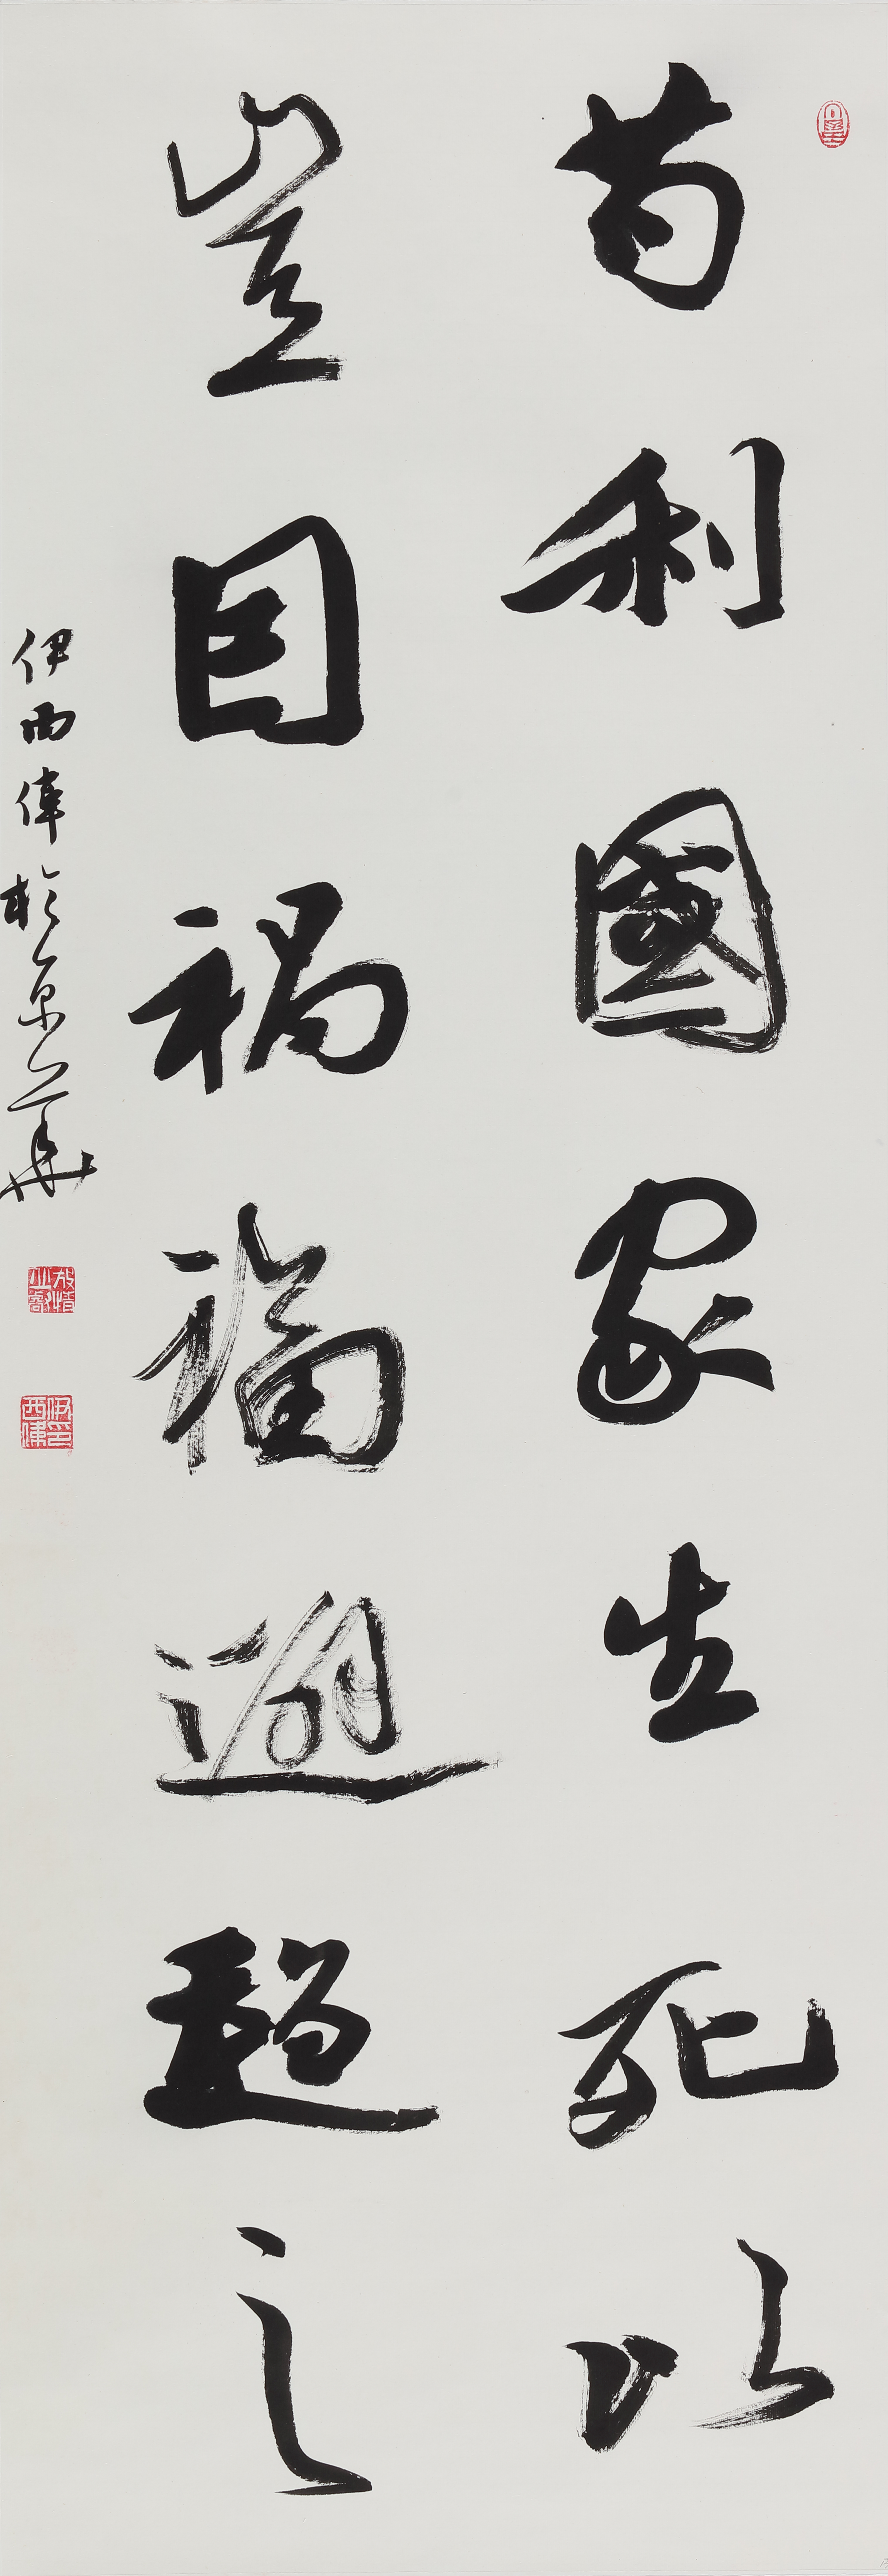 苟利國家生死以
豈因禍福避趨之
伊西偉於京華
伊西偉印